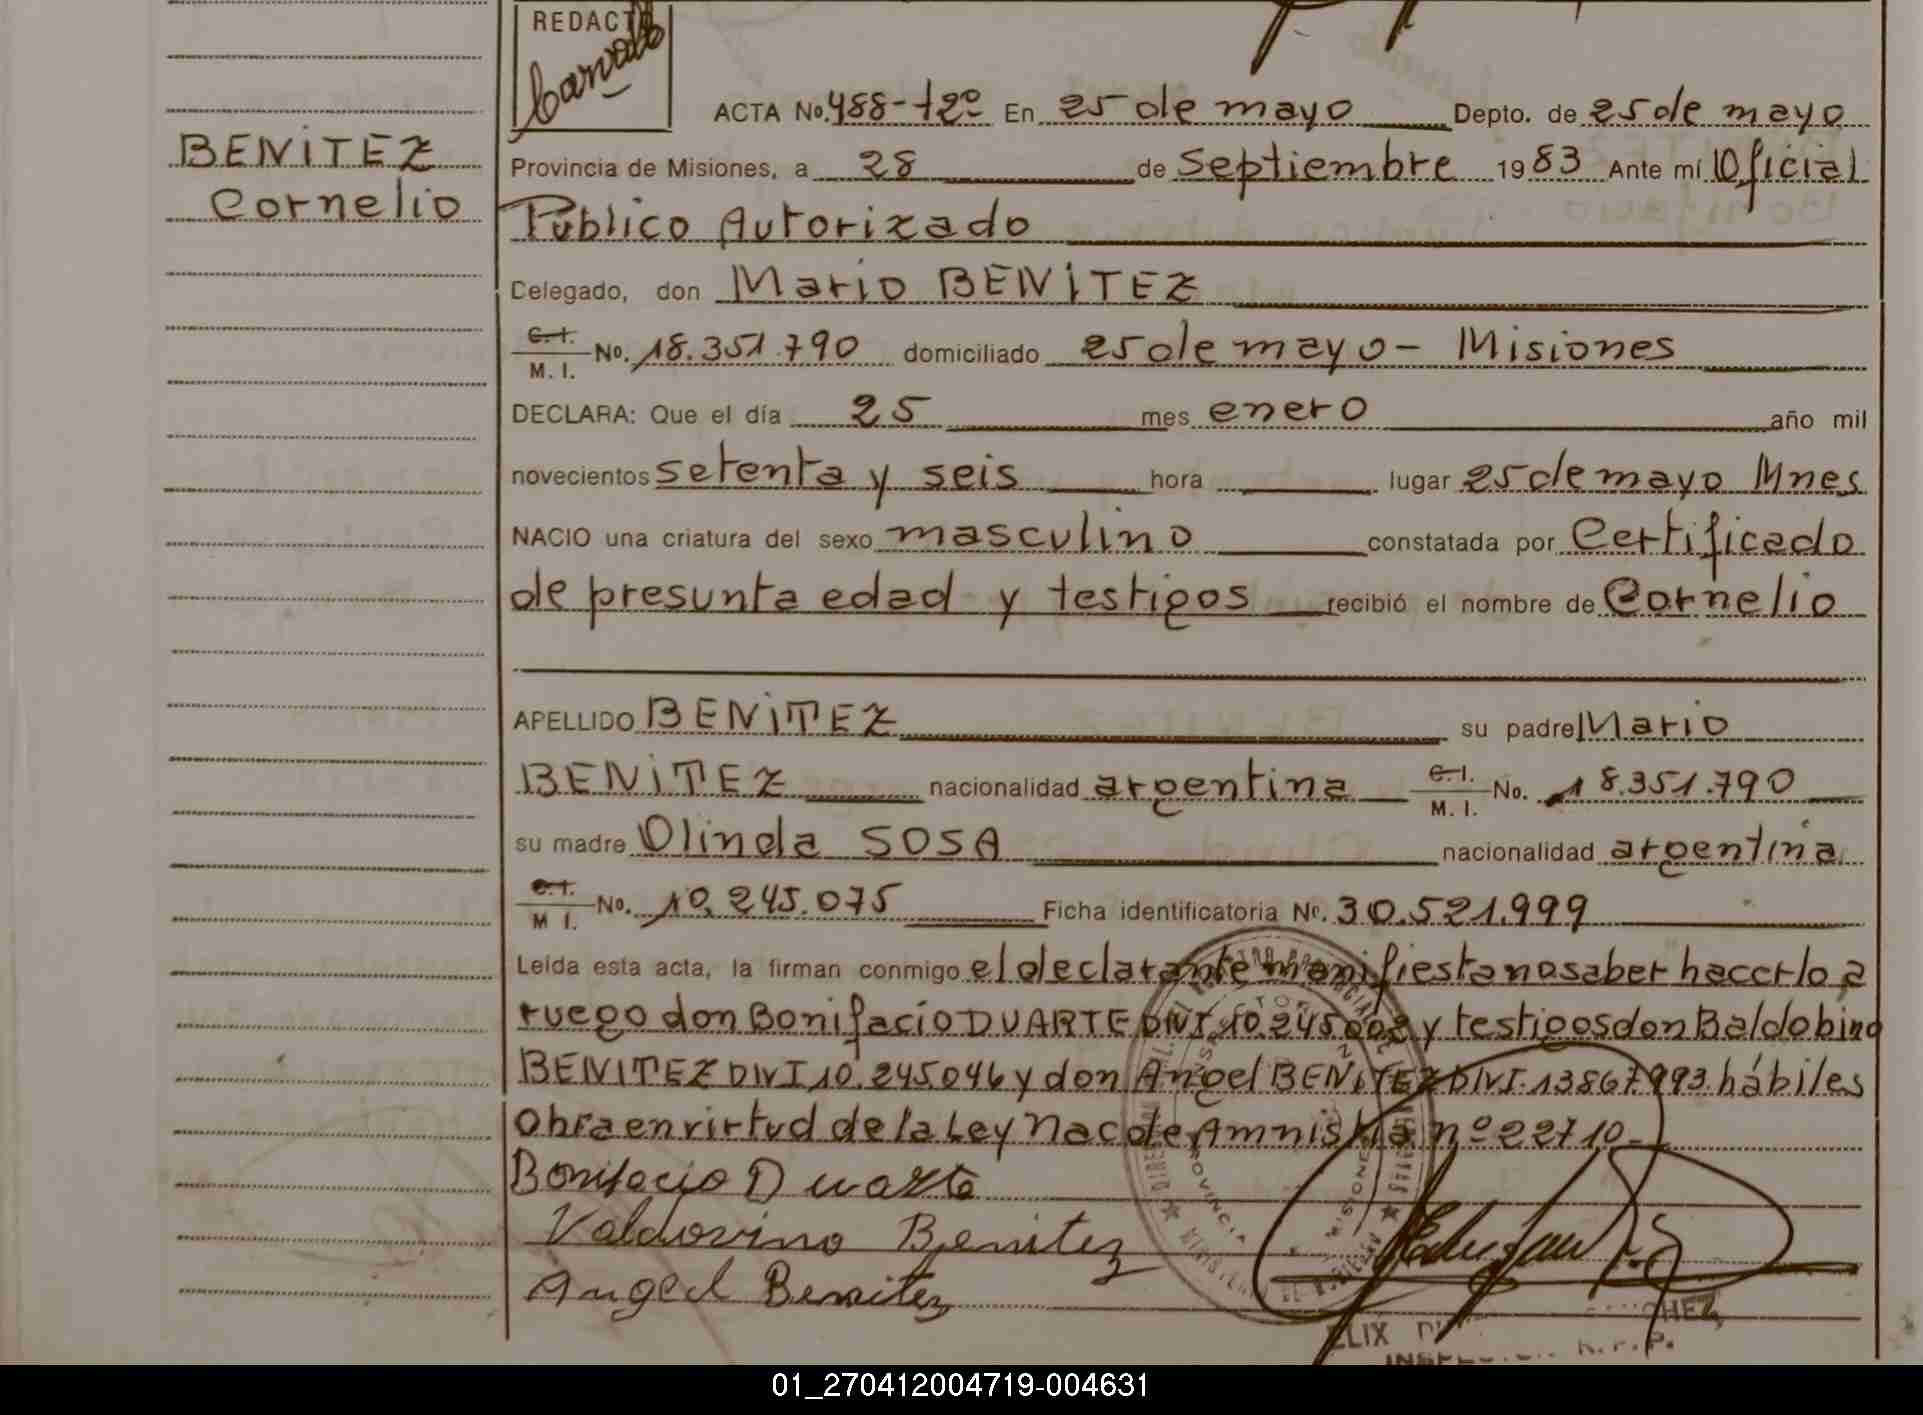 REDACTÓ
BENITEZ
Cornelio
ACTA No. 488-T2º En 25 de mayo Depto. de 25 de mayo
Provincia de Misiones, a 28 de Septiembre 1983 Ante mí Oficial
Público Autorizado
Celegado, don Mario BENITEZ
C.I.
M. I. No. 18.351.790 domiciliado 25 de mayo - Misiones
DECLARA: Que el día 25 mes enero año mil
novecientos setenta y seis hora lugar 25 de mayo Mnes
NACIO una criatura del sexo masculino constatada por Certificado
de presunta edad y testigos recibió el nombre de Cornelio
APELLIDO BENITEZ su padre Mario
BENITEZ nacionalidad argentina C.I.
M. I. No. 18.351.790
su madre Olinda SOSA nacionalidad argentina
C.I.
M I. No. 10.245.075 Ficha identificatoria Nº. 30.521.999
Leida esta acta, la firman conmigo el declarante manifiesta no saber hacerlo a
ruego don Bonifacio DUARTE DNI 10.245.002 y testigos don Baldobino
BENITEZ DNI 10.245046 y don Angel BENITEZ DNI. 13867.993 hábiles
Obra en virtud de la Ley Nac de Amnistia nº 22710-
Bonifacio Duarte
Valdovino Benitez
Angel Benitez
01_270412004719-004631